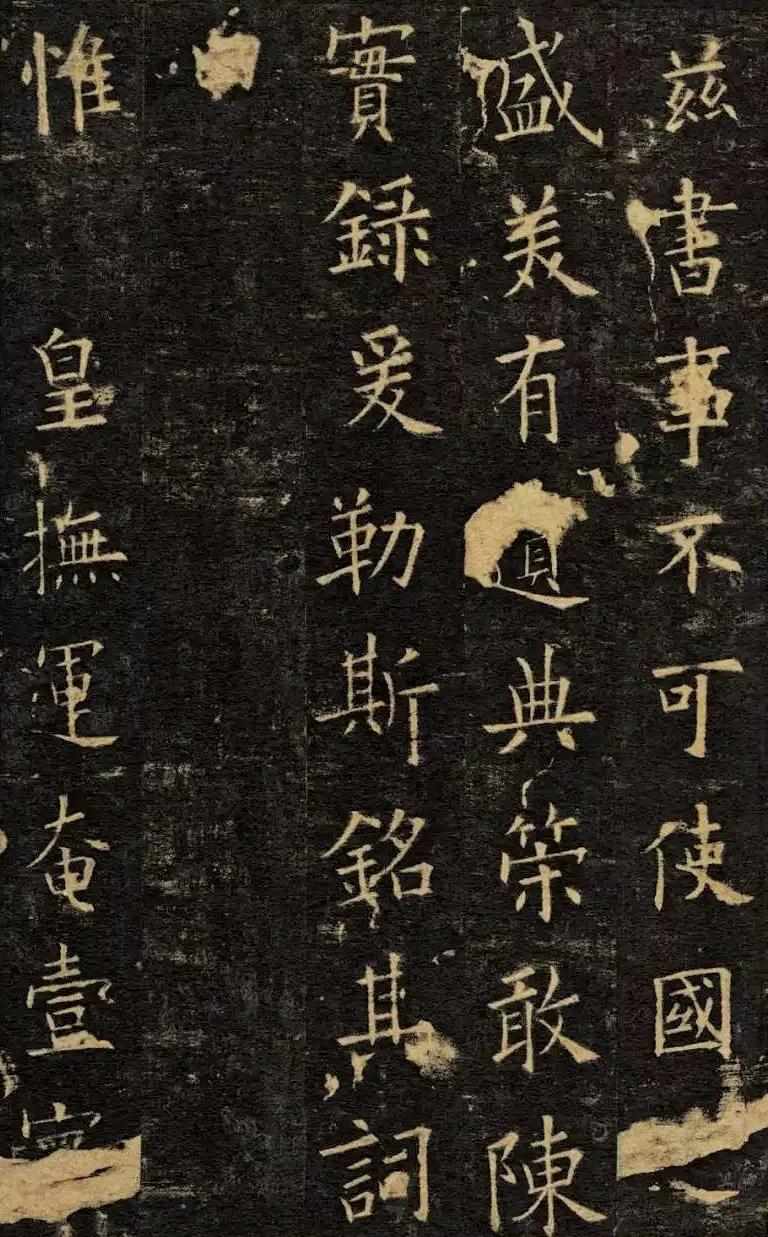 兹書事不可使國
盛美有遺典策敢陳
實錄爰勒斯銘其詞
曰
惟皇撫運奄壹寰